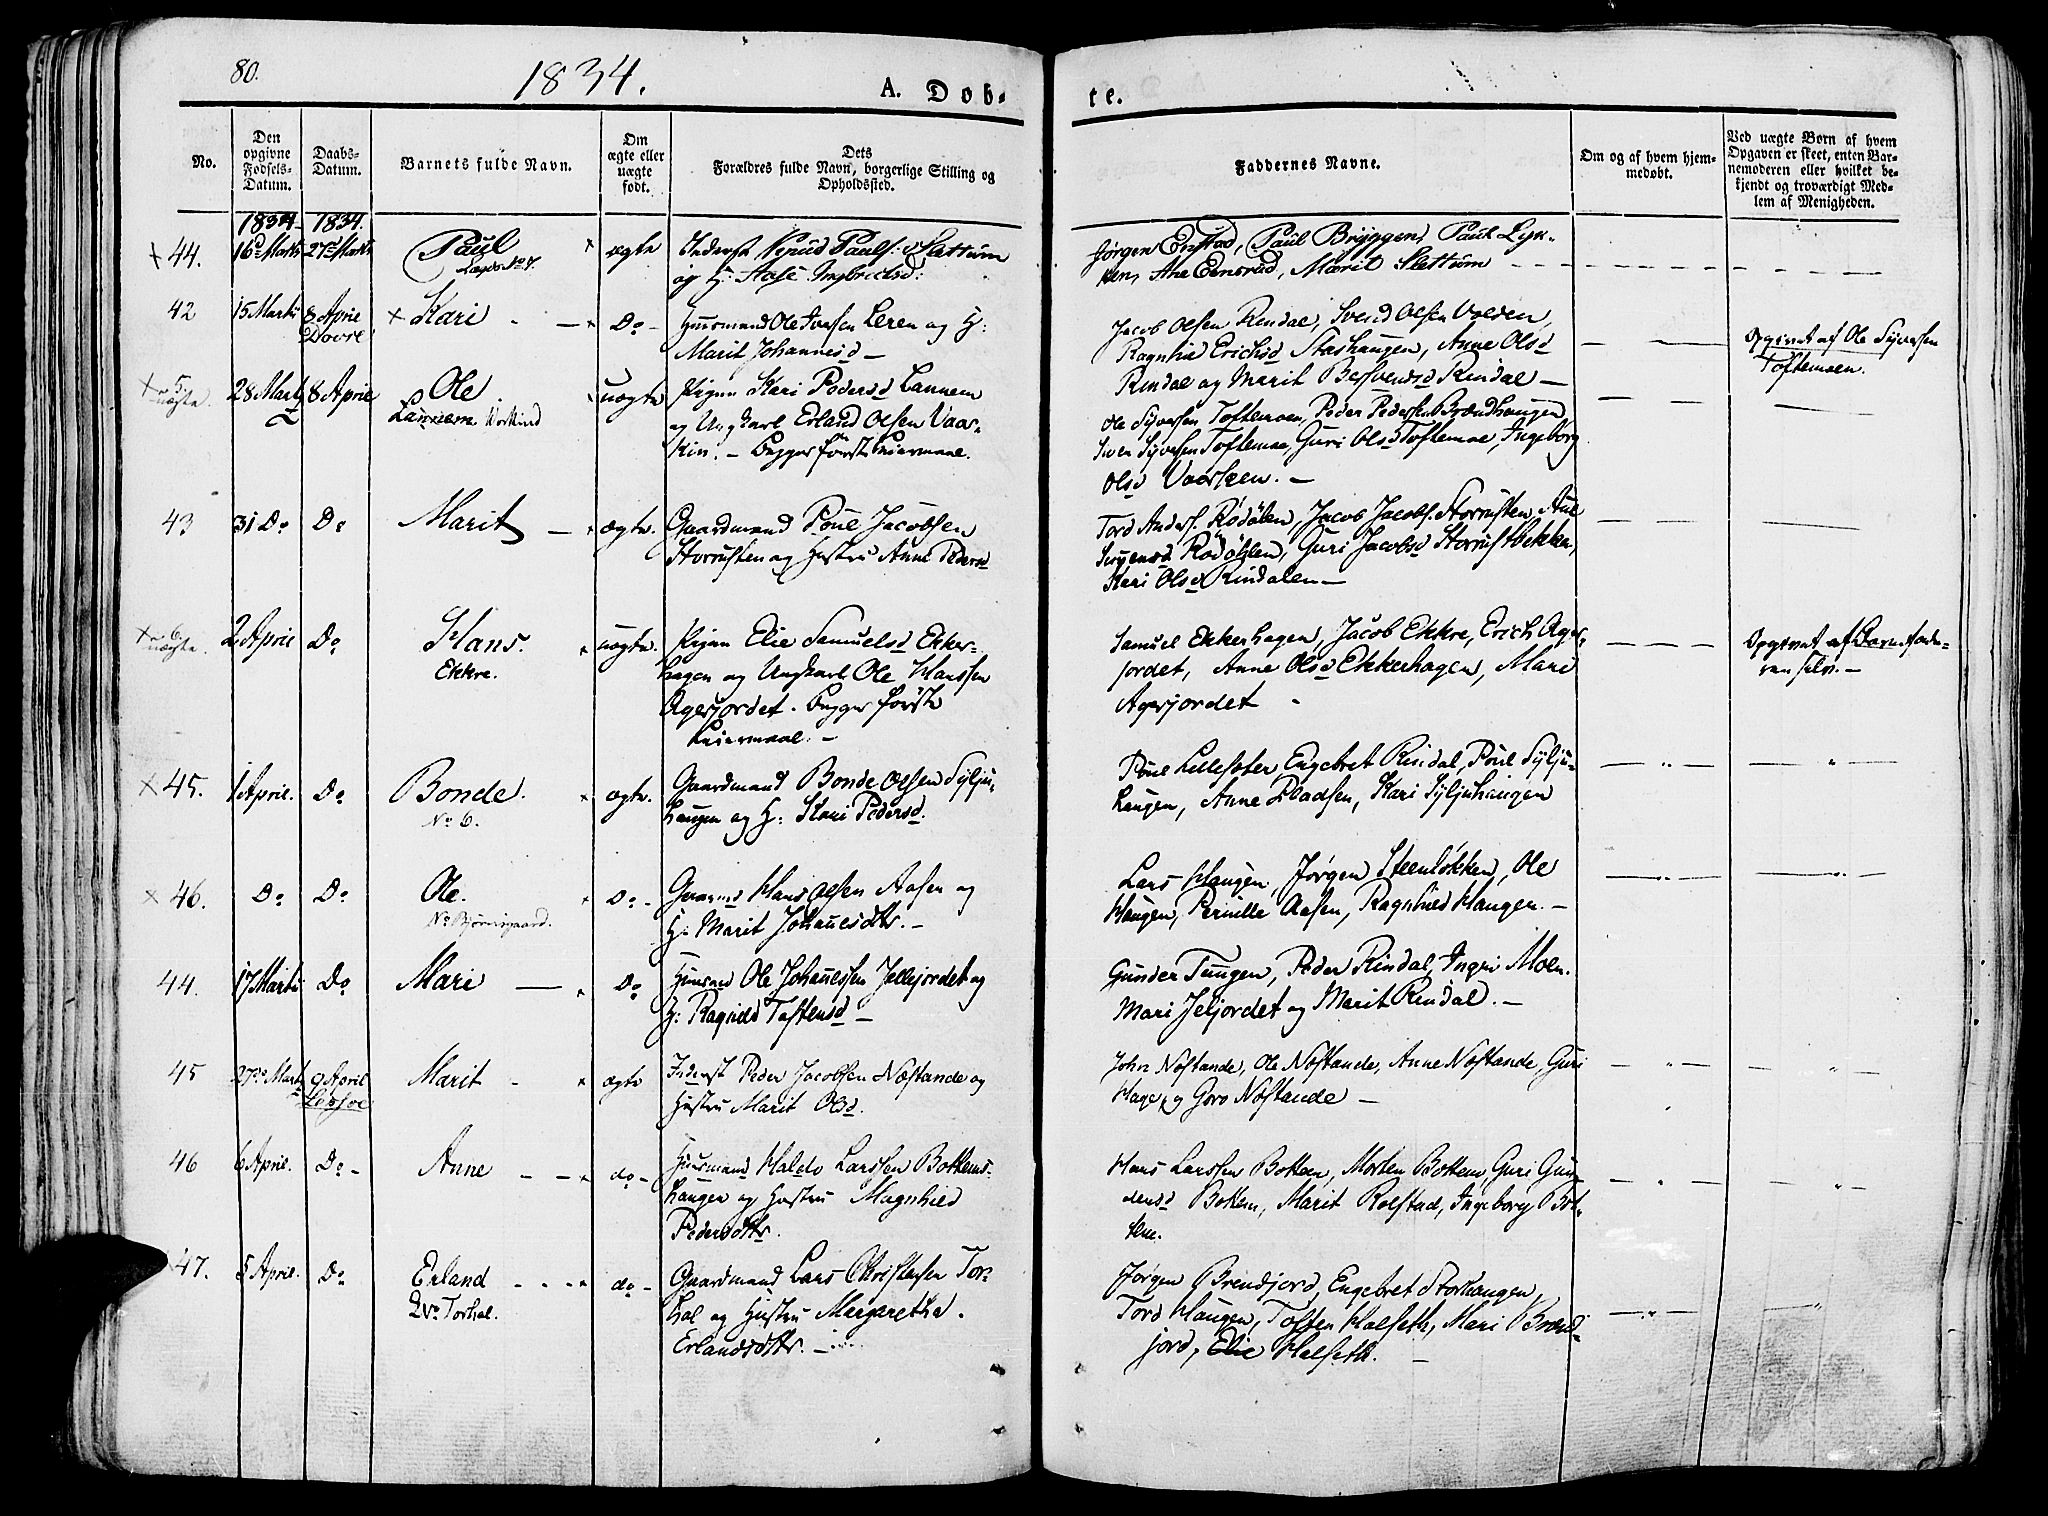 80.
1834.
A. Døb-
te.
No.
Den
opgivne
Fødsels-
Datum.
Daabs-
Datum.
Barnets fulde Navn.
Om
ægte eller
uægte
født.
Dets
Forældres fulde Navn, borgerlige Stilling og
Opholdssted.
Faddernes Navne.
Om og af hvem hjem-
medøbt.
Ved uægte Børn af hvem
Opgaven er skeet, enten Bar-
nemoderen eller hvilket be-
kjendt og troværdigt Med-
lem af Menigheden.
1834. 1834.
44. 16de Marts 27de Marts Paul ægte Inderst Pauls:
og H: Ingbrichsd:
Jørgen Paul Bryggen, Paul Lyk-
ken, Ane Marit Slettum
42 15 Marti 8 April Kari Do Huusmand Ole Iversen Leren og H:
Dovre Marit Johannesd
Jacob Olsen Rindal, Svend Olsen Volden,
Ragnhild Erichsd Stashaugen, Anne Olsd
Rindal og Marit Rindal
No 5 uægte. 28 Marti 8 April Ole uægte Pigen Kari Pedersd Lannem
Lannem. og Ungkarl Erland Olsen Vaar-
Begges første Leiermaal.
Ole Syversen Toftemoen, Peder Pedersen Brændhaugen,
Syversen Toftemoe, Guri Olsd Toftemoe, Ingeborg
Olsd
Opgivet af Ole Syversen
Toftemoen.
43 31 Do Do Marit ægte. Gaardmand Poul Jacobsen
Storrusten og Hustru Anne Pedersd
Tord Anders. Jacob Jacobs. Storrusten,
Guri Jacobsd
Kari Olsd Rindalen
No 6 uægte. 2 April Do Hans. uægte. Pigen Elie Samuelsd Ekker-
Ekkre. hagen og Ungkarl Ole Hanssen
Agerjordet. Begges første
Leiermaal.
Samuel Ekkerhagen, Jacob Ekkre, Erich Ager-
jordet, Anne Olsd Ekkerhagen, Mari
Agerjordet
Opgivet af Barnefade-
ren selv.
45. 1 April. Do Bonde. ægte. Gaardmand Bonde Olsen Sylju-
No 6. haugen og H: Kari Pedersd.
Poul Lillesæter, Engebret Rindal, Poul Sylju-
haugen, Anne Kari Syljuhaugen
46. Do Do Ole. Do Hans Olsen Aasen og
No Bjørnsgaard. H: Marit Johanesdtr.
Lars Haugen, Jørgen Steenløkken, Ole
Haugen, Pernille Aasen, Ragnhild Haugen.
44. 17 Marti Do Mari Do Huusmd Ole Johanessen Jellejordet og
H: Ragnild Toftensd
Gunder Tungen, Peder Rindal, Ingri Moen.
Mari Jeljordet og Marit Rindal.
45 27de Marti 9 April Marit ægte Inderst Peder Jacobsen Næstande og
Lesjoe Hustru Marit Olsd.
John Næstande, Ole Næstande, Anne Næstande, Guri
Hage, og Goro Næstande
46 6 April. Do Anne do Huusmand Haldo Larssen Bottems-
haugen og Hustru Magnhild
Pedersdtr.
Hans Larssen Bottem, Morten Bottem, Guri Gun-
dersd Bottem, Marit Rolstad, Ingeborg Bot-
tem.
47. 5 April. Do Erland do Gaardmand Lars Christensen Tor-
hol og Hustru Margaretha
Erlandsdtr.
Jørgen Brendjord, Engebret Storhaugen,
Tord Haugen, Toften Halseth, Mari Brend-
jord, Elie Halseth.